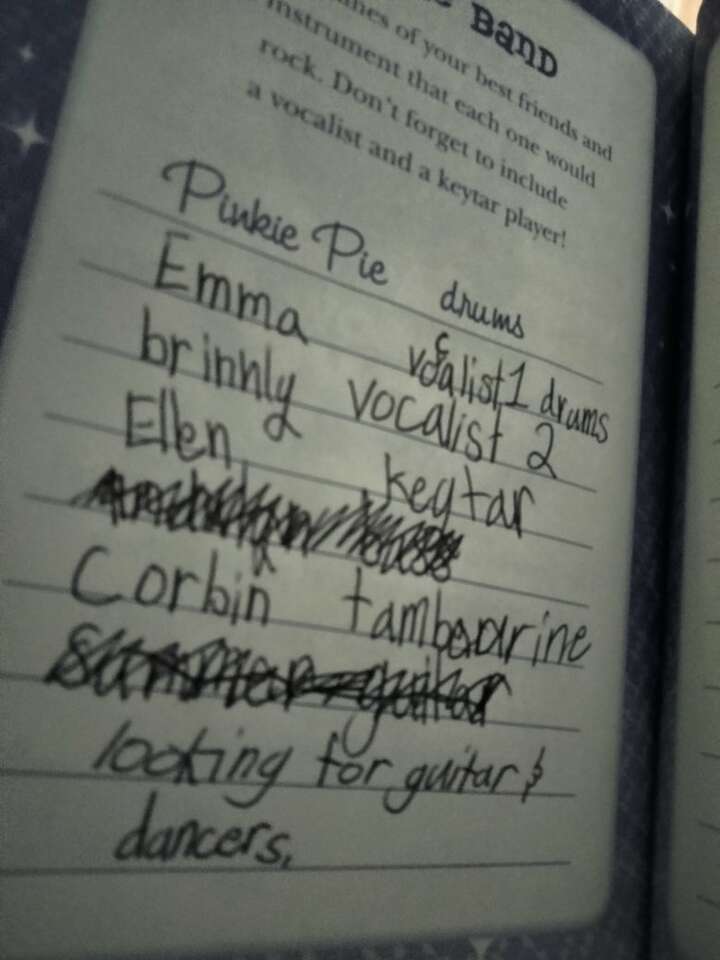 Band
names of your best friends and
instrument that each one would
rock. Don't forget to include
a vocalist and a keytar player!
Pinkie Pie drums
Emma vocalist 1 drums
brinnly vocalist 2
Ellen keytar
Corbin tambaourine
summer guitar
looking for guitar &
dancers.